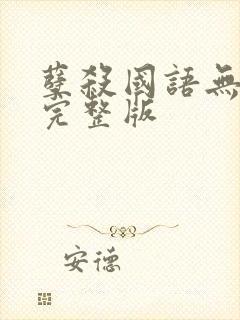 孽殺國語無
完整版
安德